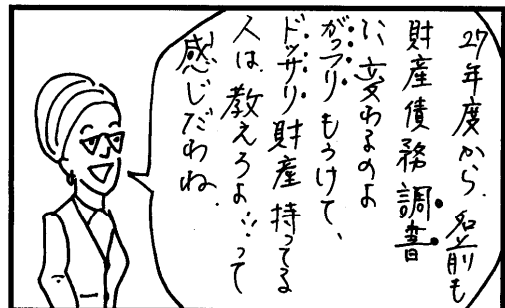 27年度から、名前も
財産債務調書
に変わるのよ
ガッツリもうけて、
ドッサリ財産持ってる
人は、教えろよ…って
感じだわね。